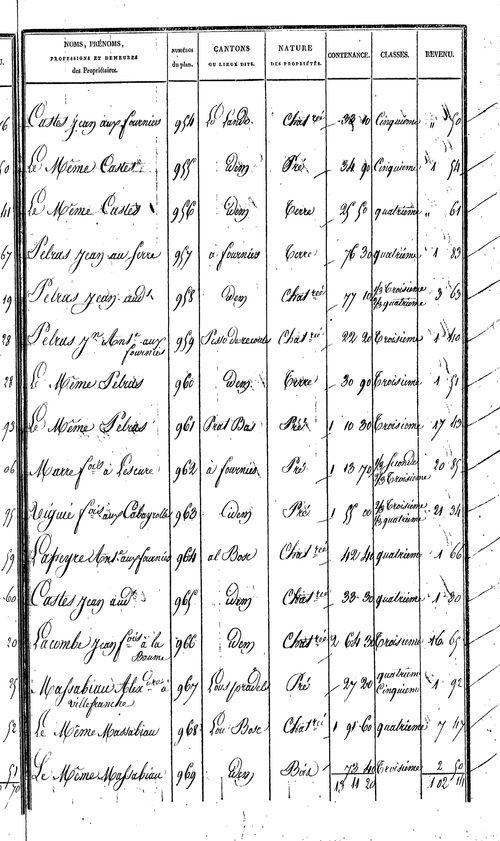 NOMS, PRÉNOMS, PROFESSIONS ET DEMEURES des Propriétaires. NUMÉROS du plan. CANTONS OU LIEUX DITS. NATURE DES PROPRIÉTÉS. CONTENANCE. CLASSES. REVENU.
Castes jean aux fournies 954 Lo Lando Chat.reé 38 10 Cinquieme " 50
Le Même Castes 955 idem Pré 34 90 Cinquieme 1 54
Le Même Castes 956 idem Terre 25 50 quatrieme " 61
Pelras jean au serre 957 a fournies Terre 76 30 quatrieme 1 83
Pelras jean aud.t 958 idem Chat.reé 77 10 1/3 Troisieme 2/3 quatrieme 3 63
Pelras j.n Ant.e aux fournies 959 Chat.reé 22 20 Troisieme 1 110
Le Même Pelras 960 idem Terre 30 90 Troisieme 1 51
Le Même Pelras 961 Prat Bas Pré 1 10 30 Troisieme 17 43
Marre f.ois à Lescure 962 à fournies Pré 1 13 70 1/3 Seconde 2/3 Troisieme 20 85
f.ois aux Cabayrolles 963 idem Pré 1 55 00 2/3 Troisieme 1/3 quatrieme 21 34
Lapeyre Ant.e aux fournies 964 al Bosc Chat.reé 42 40 quatrieme 1 66
Castes jean aud.t 965 idem Chat.reé 33 30 quatrieme 1 30
Lacombe jean f.ois à la Baume 966 idem Chat.reé 2 64 30 Troisieme 16 65
Massabiau Alex.dre à Villefranche 967 Lous pradels Pré 27 20 quatrieme Cinquieme 1 92
Le Même Massabiau 968 Lou Bosc Chat.reé 1 91 60 quatrieme 7 47
Le Même Massabiau 969 idem Bois 73 40 Troisieme 2 50
13 11 20 102 111